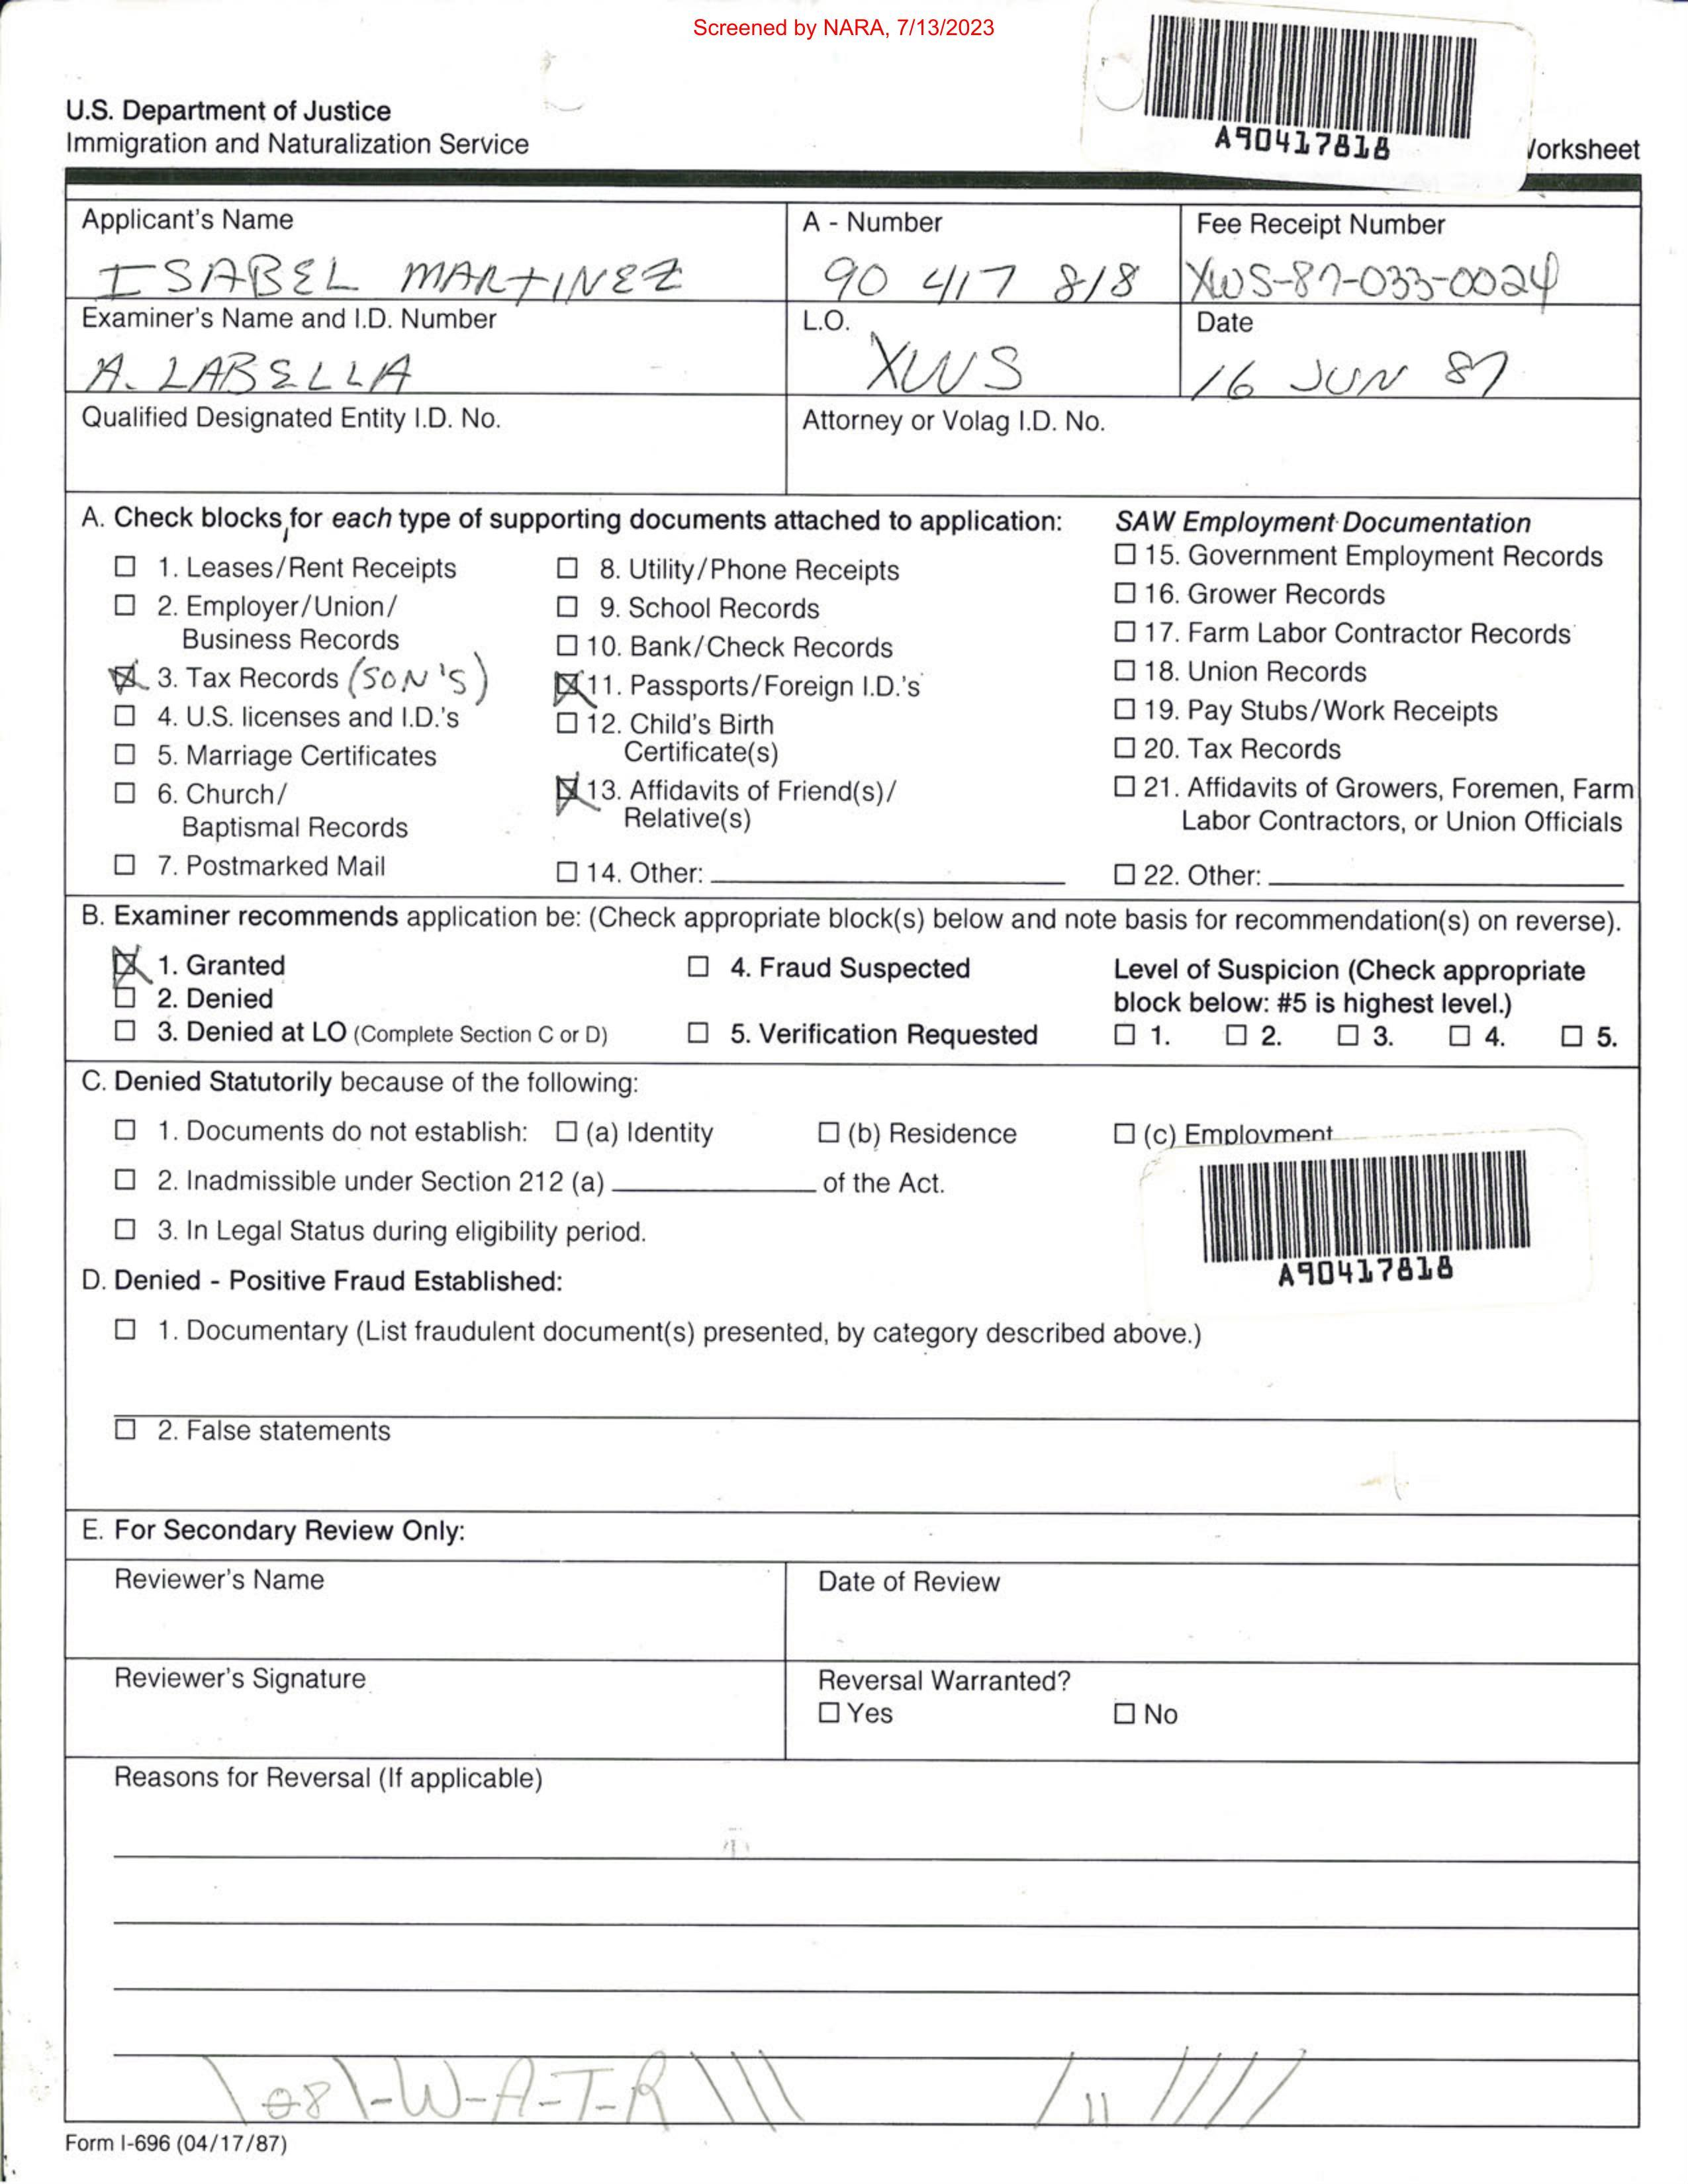 Screened by NARA, 7/13/2023
U.S. Department of Justice
Immigration and Naturalization Service
A90417818
orksheet
Applicant's Name
A - Number
Fee Receipt Number
ISABEL MARTINEZ
90 417 818
XWS-87-033-0024
Examiner's Name and I.D. Number
L.O.
Date
A. LABELLA
XWS
16 JUN 87
Qualified Designated Entity I.D. No.
Attorney or Volag I.D. No.
A. Check blocks for each type of supporting documents attached to application:
☐ 1. Leases/Rent Receipts
☐ 2. Employer/Union/
Business Records
☒ 3. Tax Records (SON'S)
☐ 4. U.S. licenses and I.D.'s
☐ 5. Marriage Certificates
☐ 6. Church/
Baptismal Records
☐ 7. Postmarked Mail
☐ 8. Utility/Phone Receipts
☐ 9. School Records
☐ 10. Bank/Check Records
☒ 11. Passports/Foreign I.D.'s
☐ 12. Child's Birth
Certificate(s)
☒ 13. Affidavits of Friend(s)/
Relative(s)
☐ 14. Other:
SAW Employment Documentation
☐ 15. Government Employment Records
☐ 16. Grower Records
☐ 17. Farm Labor Contractor Records
☐ 18. Union Records
☐ 19. Pay Stubs/Work Receipts
☐ 20. Tax Records
☐ 21. Affidavits of Growers, Foremen, Farm
Labor Contractors, or Union Officials
☐ 22. Other:
B. Examiner recommends application be: (Check appropriate block(s) below and note basis for recommendation(s) on reverse).
☒ 1. Granted
☐ 2. Denied
☐ 3. Denied at LO (Complete Section C or D)
☐ 4. Fraud Suspected
☐ 5. Verification Requested
Level of Suspicion (Check appropriate
block below: #5 is highest level.)
☐ 1. ☐ 2. ☐ 3. ☐ 4. ☐ 5.
C. Denied Statutorily because of the following:
☐ 1. Documents do not establish: ☐ (a) Identity ☐ (b) Residence ☐ (c) Employment
☐ 2. Inadmissible under Section 212 (a) of the Act.
☐ 3. In Legal Status during eligibility period.
A90417818
D. Denied - Positive Fraud Established:
☐ 1. Documentary (List fraudulent document(s) presented, by category described above.)
☐ 2. False statements
E. For Secondary Review Only:
Reviewer's Name
Date of Review
Reviewer's Signature
Reversal Warranted?
☐ Yes ☐ No
Reasons for Reversal (If applicable)
\08\-W-A-T-R\\\ / 11 ////
Form I-696 (04/17/87)